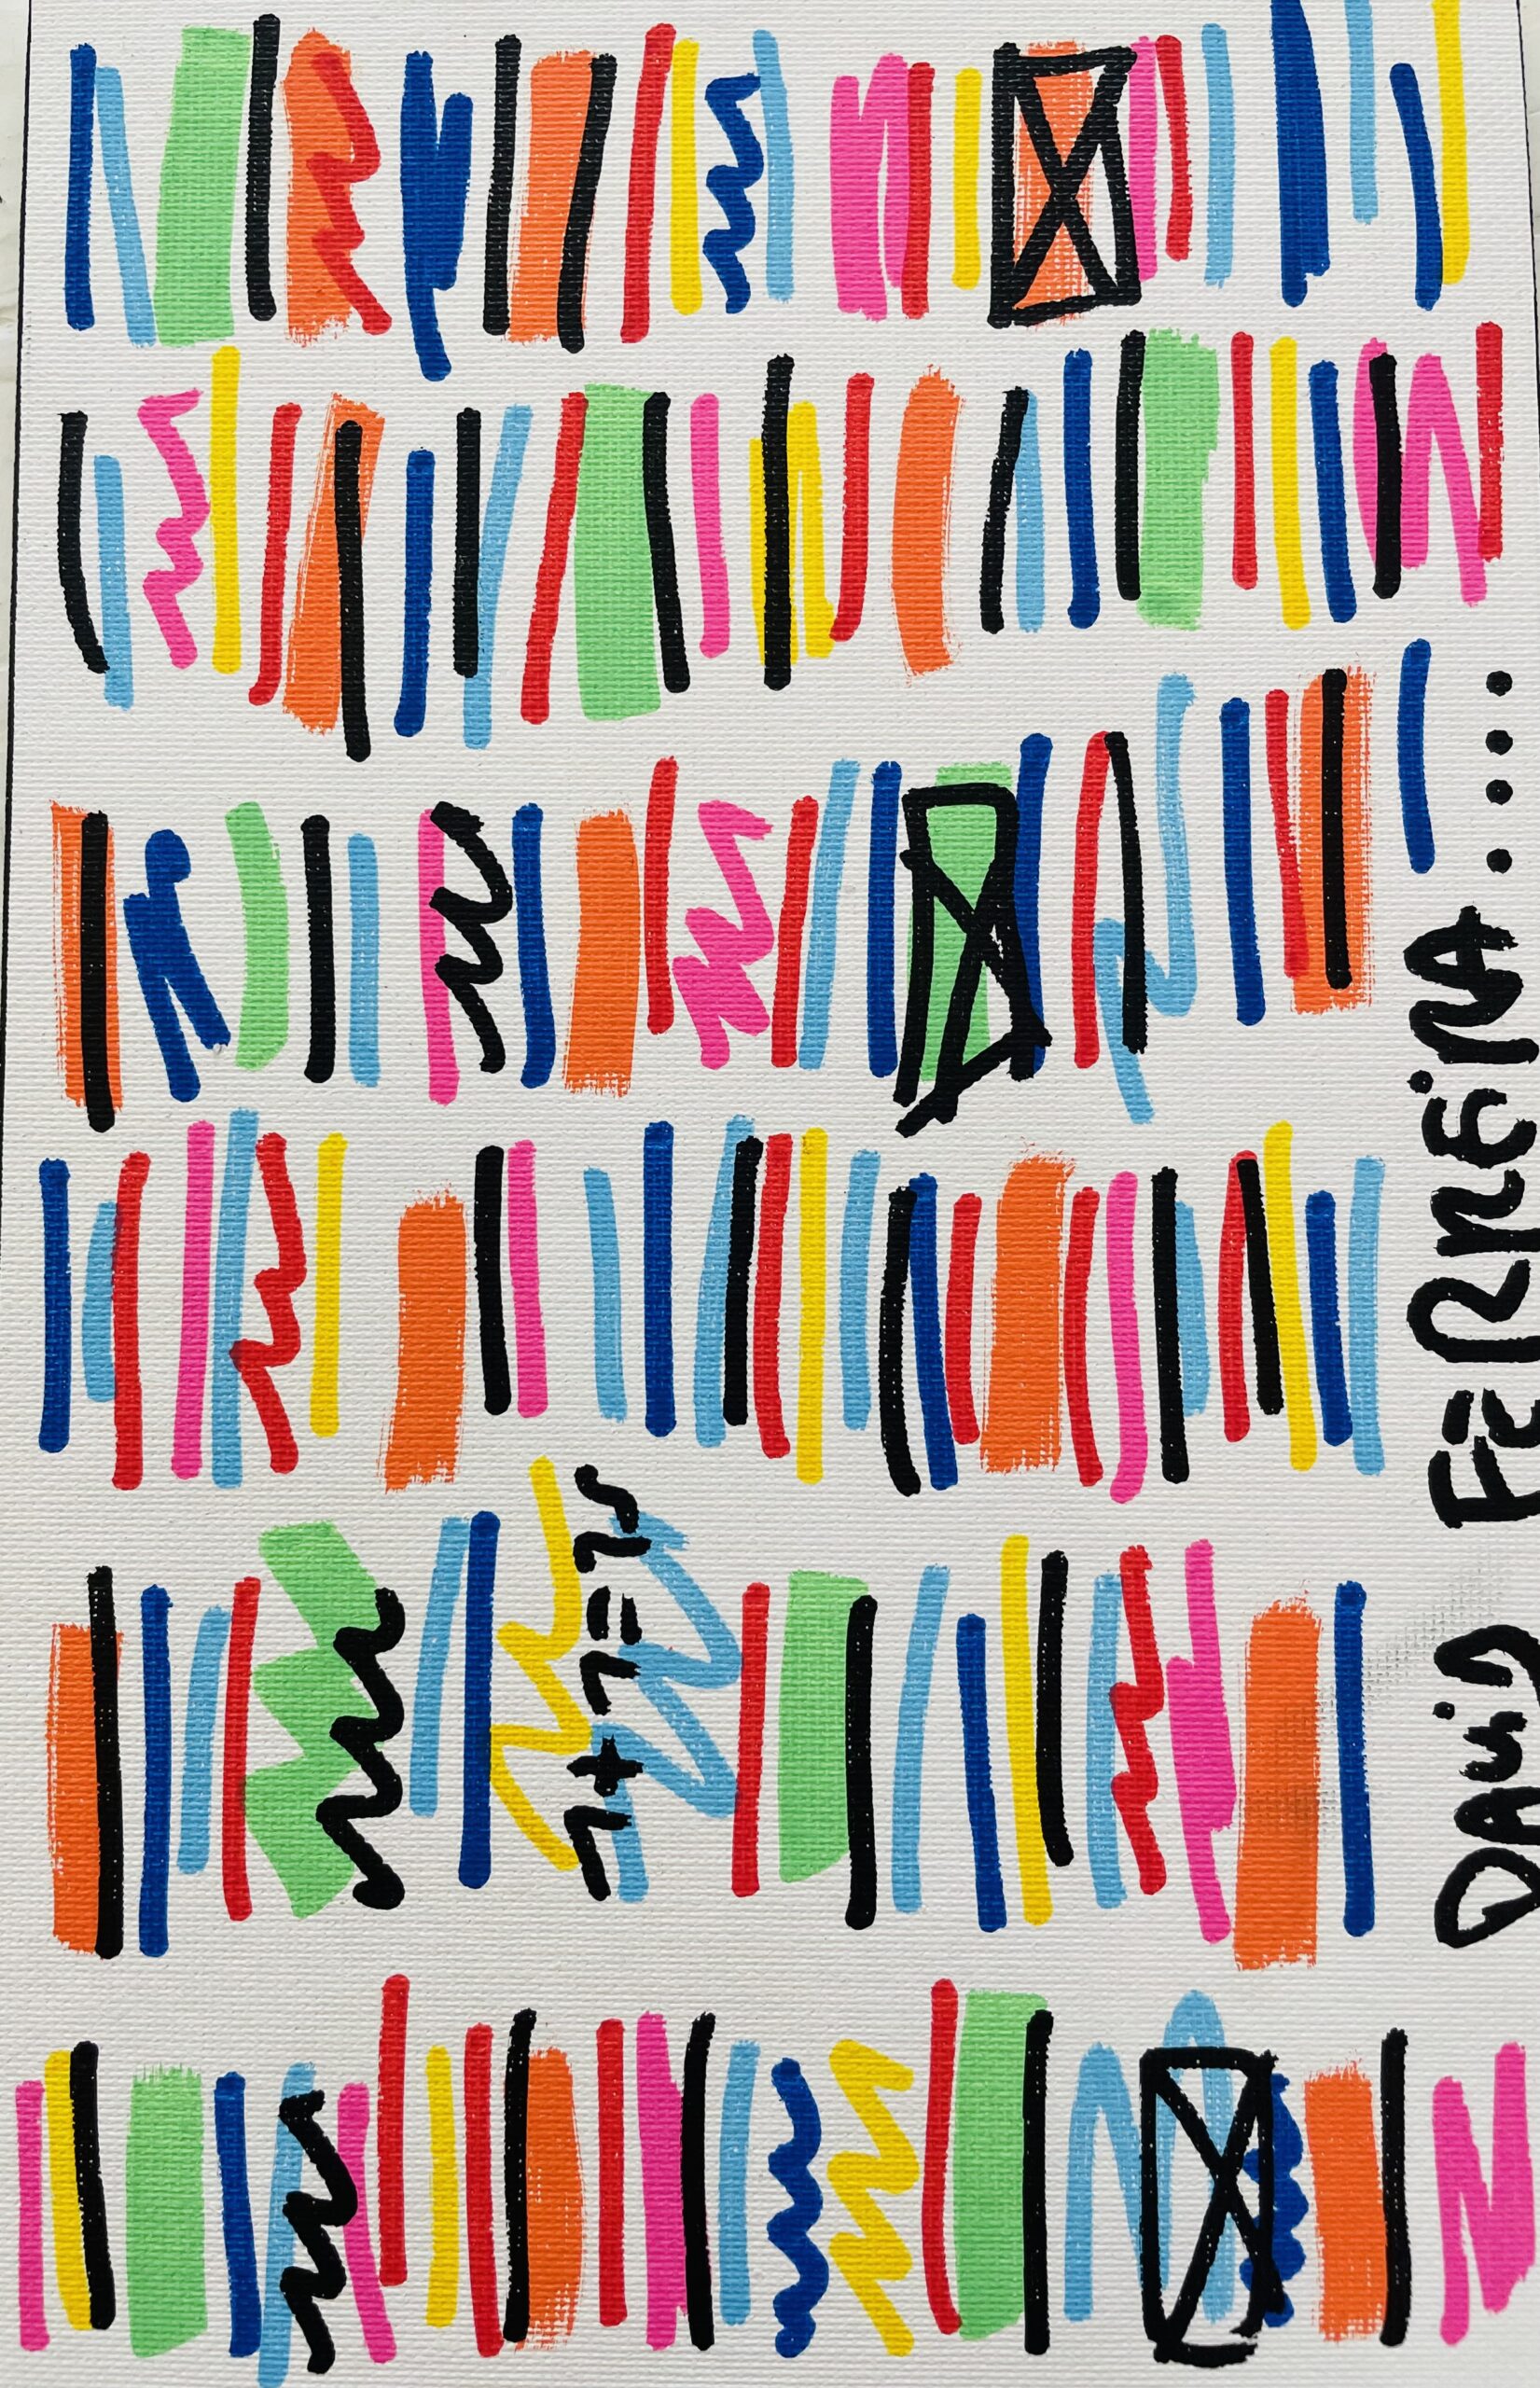 1+1=2
DAViD FERREiRA....